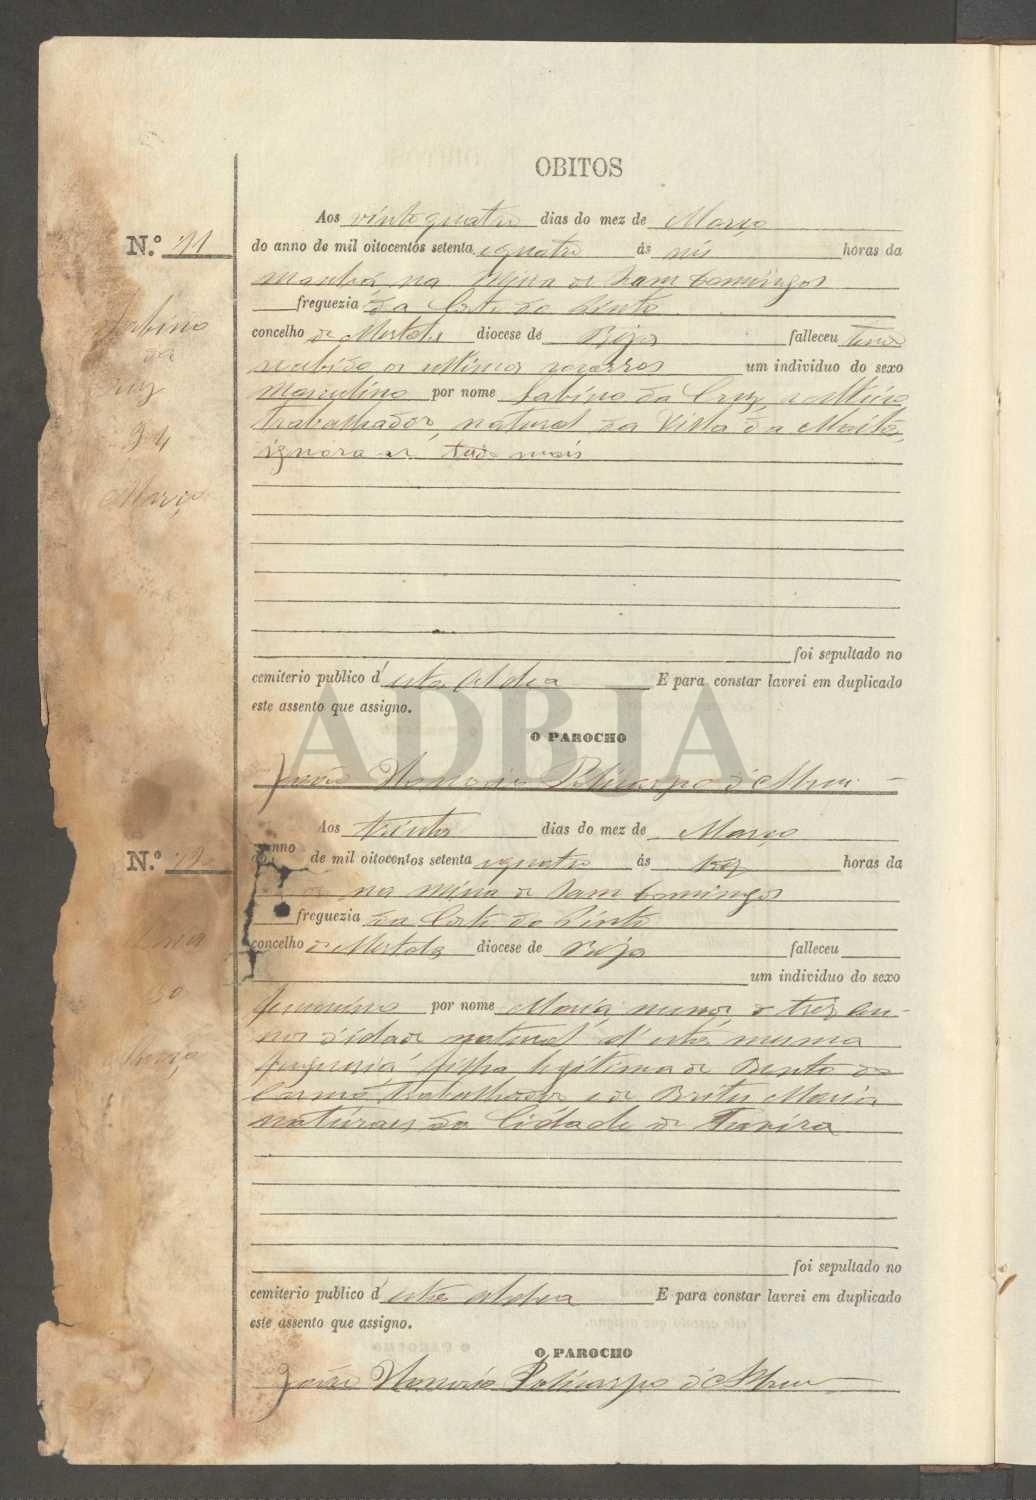 OBITOS
Aos vinte quatro dias do mez de Março
N.º 11
do anno de mil oitocentos setenta equatro ás horas da
manhã, na Mina de Sam Domingos
freguezia da Corte do Pinto
concelho de Mertola diocese de Beja falleceu tendo
recebido os um individuo do sexo
Masculino por nome Sabino da Cruz,
trabalhador, natural da Villa da
ignora-se tudo mais
Sabino
da
Cruz
24
Março
foi sepultado no
cemiterio publico d'esta Aldea E para constar lavrei em duplicado
este assento que assigno.
O PAROCHO
ADBJA
João Policarpo d'Abreu
Aos trinta dias do mez de Março
N.º 12
do anno de mil oitocentos setenta equatro ás horas da
na Mina de Sam Domingos
freguezia da Corte do Pinto
concelho de Mertola diocese de Beja falleceu
um individuo do sexo
femenino por nome Maria, menor de trez an-
nos d'idade natural d'esta mesma
freguesia, filha legitima de Bento do
Carmo, trabalhador e de Brites Maria
naturaes da Cidade de Tavira
Maria
30
Março
foi sepultado no
cemiterio publico d'esta aldea E para constar lavrei em duplicado
este assento que assigno.
O PAROCHO
João Policarpo d'Abreu